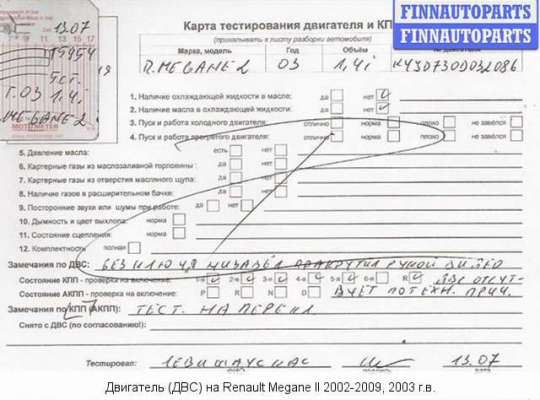 FINNAUTOPARTS
FINNAUTOPARTS
13.07
15954
5ст.
Г.03 1,4i
MEGANE 2
MOTOMETER
Карта тестирования двигателя и КП
(прикалывать к листу разборки автомобиля)
Марка, модель Год Объём № двигателя
R.MEGANE2 03 1,4i K4JD730D032086
1. Наличие охлаждающей жидкости в масле: да нет
2. Наличие масла в охлаждающей жидкости: да нет
3. Пуск и работа холодного двигателя: отлично норма плохо не завёлся
4. Пуск и работа прогретого двигателя: отлично норма плохо не завёлся
5. Давление масла: есть нет
6. Картерные газы из маслозаливной горловины: да нет
7. Картерные газы из отверстия масляного щупа: да нет
8. Наличие газов в расширительном бачке: да нет
9. Посторонние звуки или шумы при работе: да нет
10. Дымность и цвет выхлопа: норма
11. Состояние сцепления: норма
12. Комплектность: полная
Замечания по ДВС: БЕЗ КЛЮЧА
Состояние КПП - проверка на включение: 1-я 2-я 3-я 4-я 5-я 6-я R
Состояние АКПП - проверка на включение: P R N D ПО ТЕХН. ПРИЧ.
Замечания по КПП (АКПП): ТЕСТ. НА ПЕРЕКЛ
Снято с ДВС (по согласованию!):
Тестировал: 13.07
Двигатель (ДВС) на Renault Megane II 2002-2009, 2003 г.в.